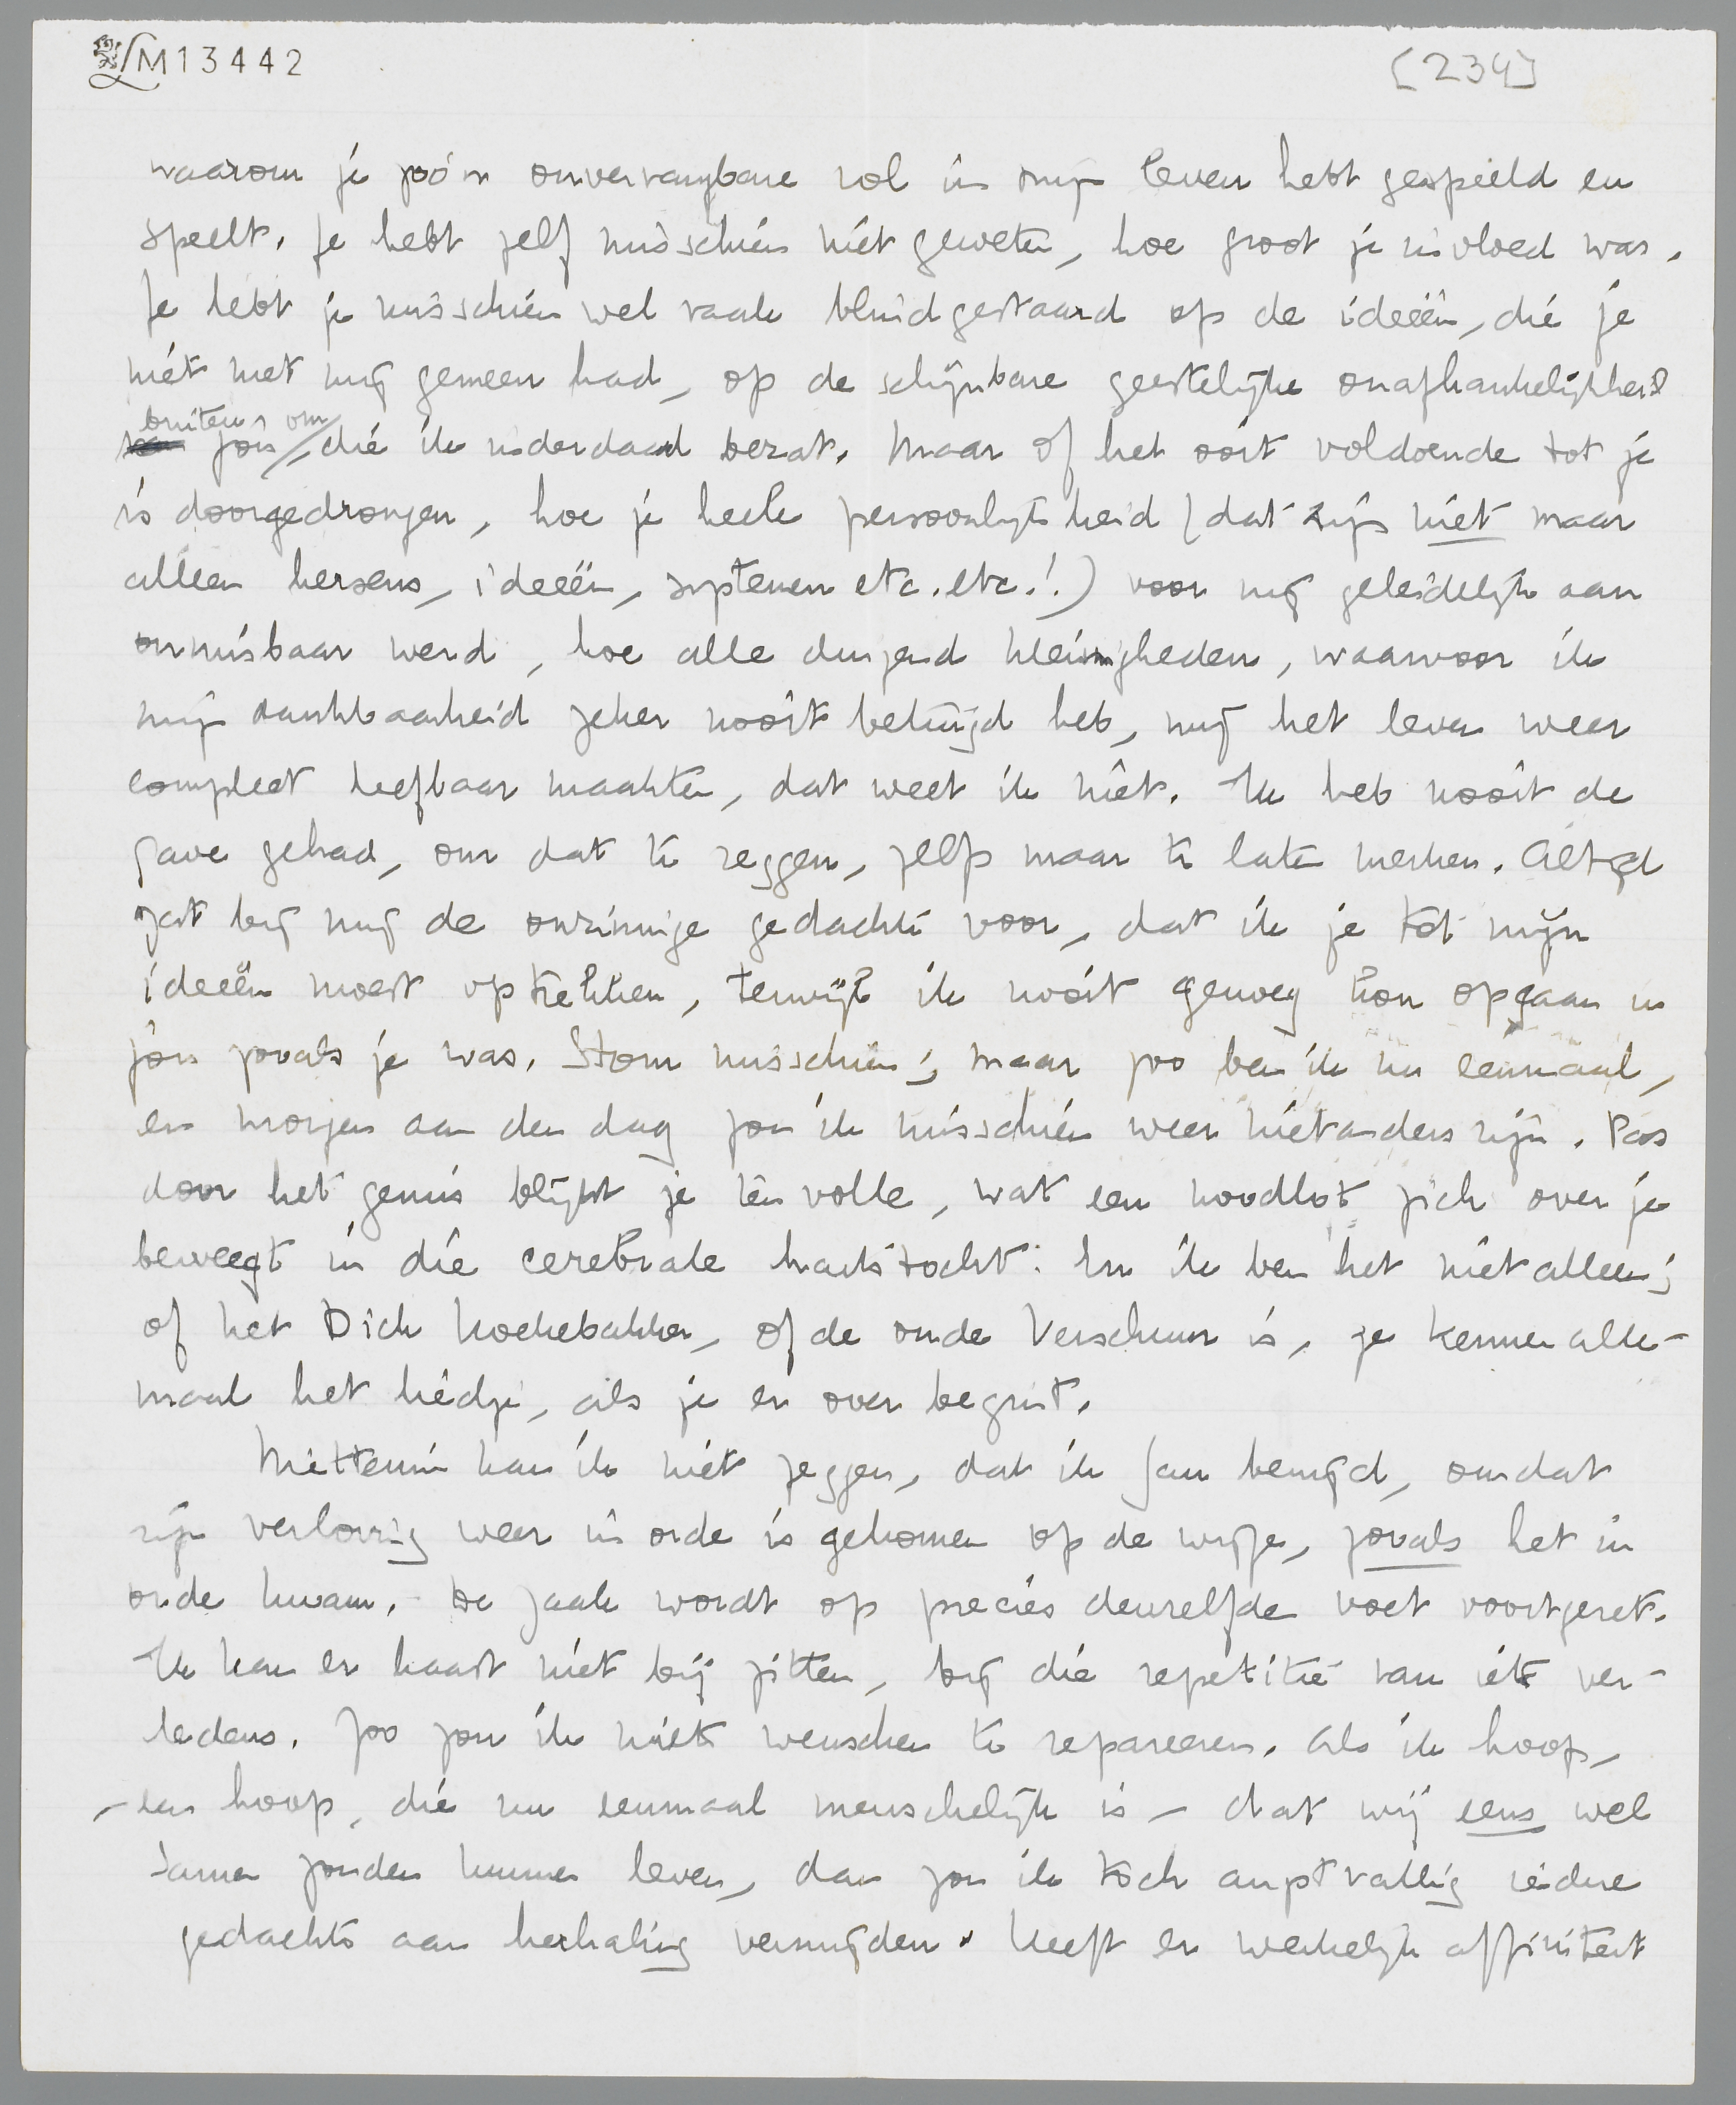 LM13442
[234]
waarom je zóó'n onvervangbare rol in mijn leven hebt gespeeld en
speelt. Je hebt zelf misschien niet geweten, hoe groot je invloed was.
Je hebt je misschien wel vaak blindgestaard op de ideeën, die je
niét met mij gemeen had, op de schijnbare geestelijke onafhankelijkheid
buiten jou om, die ik inderdaad bezat. Maar of het ooit voldoende tot je
is doorgedrongen, hoe je heele persoonlijkheid (dat zijn niet maar
alleen hersens, ideeën, systemen etc. etc.!) voor mij geleidelijk aan
onmisbaar werd, hoe alle duizend kleinigheden, waarvoor ik
mijn dankbaarheid zeker nooit betuigd heb, mij het leven weer
compleet leefbaar maakten, dat weet ik niet. Ik heb nooit de
gave gehad, om dat te zeggen, zelfs maar te laten merken. Altijd
zat bij mij de onzinnige gedachte voor, dat ik je tot mijn
ideeën moest optrekken, terwijl ik nooit genoeg kon opgaan in
jou zooals je was. Stom misschien; maar zoo ben ik nu eenmaal,
en morgen aan den dag zou ik misschien weer niet anders zijn. Pas
door het gemis blijkt je ten volle, wat een noodlot zich over je
beweegt in die cerebrale hartstocht. En ik ben het niet alleen;
of het Dick Koekebakker, of de oude Verschuur is, ze kennen alle-
maal het liedje, als je er over begint.
Niettemin kan ik niet zeggen, dat ik Jan benijd, omdat
zijn verloving weer in orde is gekomen op de wijze, zooals het in
orde kwam. De zaak wordt op precies denzelfde voet voortgezet.
Ik kan er haast niet bij zitten, bij die repetitie van iets ver-
ledens. Zoo zou ik niets wenschen te repareeren. Als ik hoop,
- een hoop, die nu eenmaal menschelijk is - dat wij eens wel
samen zouden kunnen leven, dan zou ik toch angstvallig iedere
gedachte aan herhaling vermijden. Heeft er werkelijk affiniteit